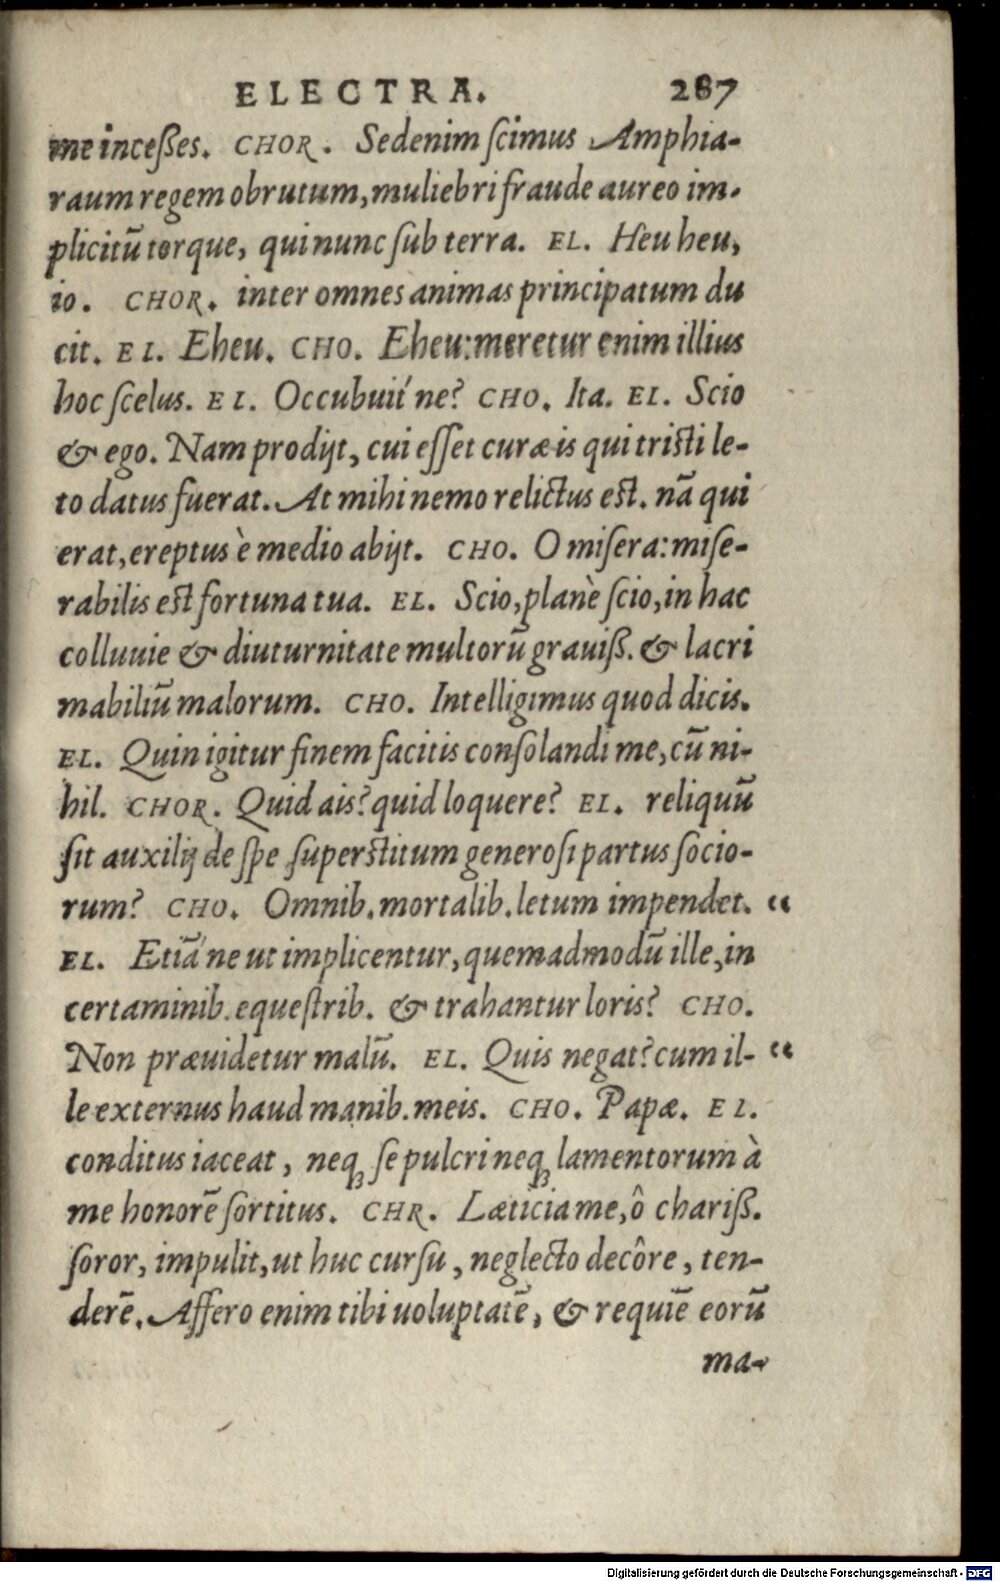 ELECTRA. 287
me inceßes. CHOR. Sed enim ſcimus Amphia-
raum regem obrutum, muliebri fraude aureo im-
plicitū torque, qui nunc ſub terra. EL. Heu heu,
io. CHOR. inter omnes animas principatum du
cit. EL. Eheu. CHO. Eheu: meretur enim illius
hoc ſcelus. EL. Occubuit́ ne? CHO. Ita. EL. Scio
& ego. Nam prodijt, cui eſſet curæ is qui triſti le-
to datus fuerat. At mihi nemo relictus eſt. nā qui
erat, ereptus è medio abijt. CHO. O miſera: miſe-
rabilis eſt fortuna tua. EL. Scio, planè ſcio, in hac
colluuie & diuturnitate multorū grauiß. & lacri
mabiliū malorum. CHO. Intelligimus quod dicis.
EL. Quin igitur finem facitis conſolandi me, cū ni-
hil. CHOR. Quid ais? quid loquere? EL. reliquū
ſit auxilij de ſpe ſuperſtitum generoſi partus ſocio-
rum? CHO. Omnib. mortalib. letum impendet. “
EL. Etiā́ ne ut implicentur, quemadmodū ille, in
certaminib. equeſtrib. & trahantur loris? CHO.
Non præuidetur malū. EL. Quis negat? cum il- “
le externus haud manib. meis. CHO. Papæ. EL.
conditus iaceat, neqꝫ ſepulcri neqꝫ lamentorum à
me honorē ſortitus. CHR. Læticia me, ô chariß.
ſoror, impulit, ut huc curſu, neglecto decôre, ten-
derē. Affero enim tibi uoluptatē, & requiē eorū
ma-
Digitalisierung gefördert durch die Deutsche Forschungsgemeinschaft - DFG